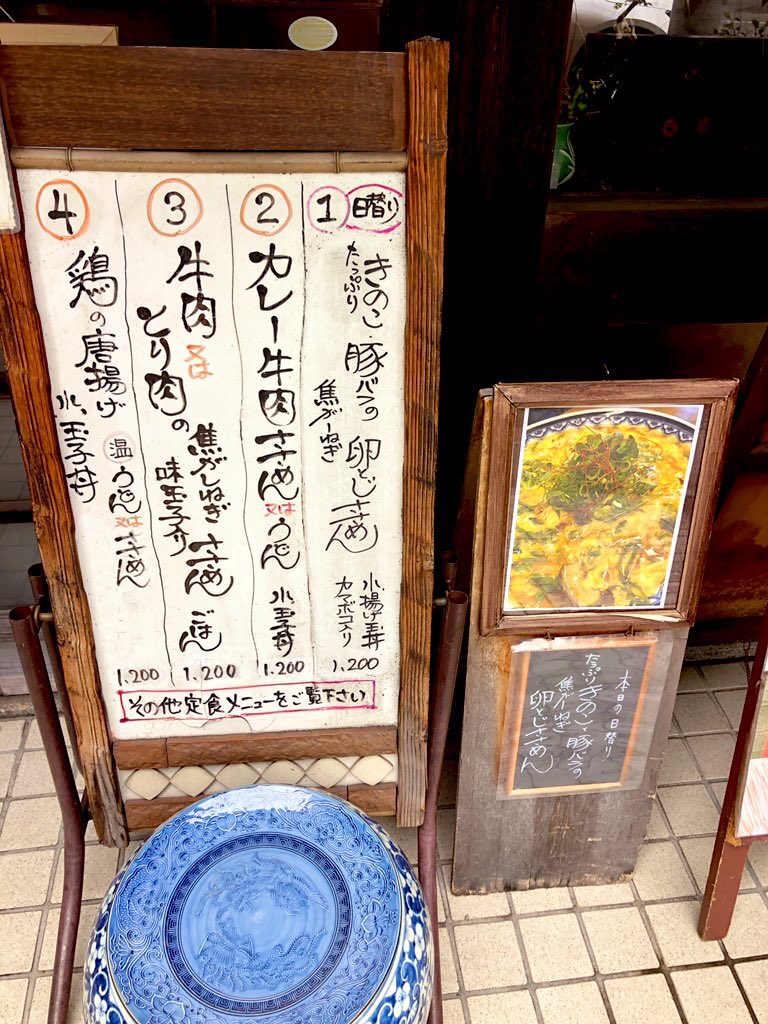 ① 日替り
たっぷり
きのこ 豚バラの
焦がしねぎ
卵とじさめん
小揚げ玉丼
カマボコ入り
1.200
②
カレー牛肉さめん又はうどん
小玉子丼
1.200
③
牛肉又はとり肉の
焦がしねぎ
味玉子入り
さめん
ごはん
1.200
④
鶏の唐揚げ
小玉子丼
温うどん又はさめん
1.200
その他定食メニューをご覧下さい
本日の日替り
たっぷり
きのこと豚バラの
焦がしねぎ
卵とじさめん